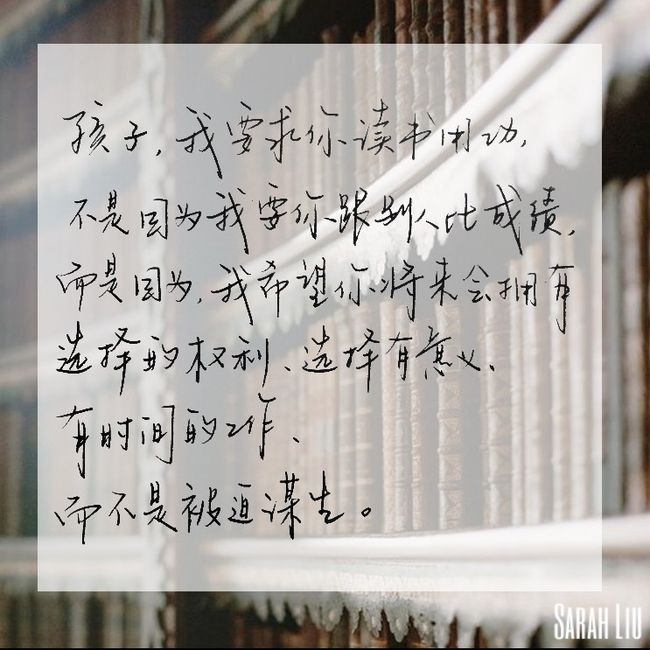 孩子，我要求你读书用功，
不是因为我要你跟别人比成绩，
而是因为，我希望你将来会拥有
选择的权利、选择有意义、
有时间的工作、
而不是被迫谋生。
SARAH LIU